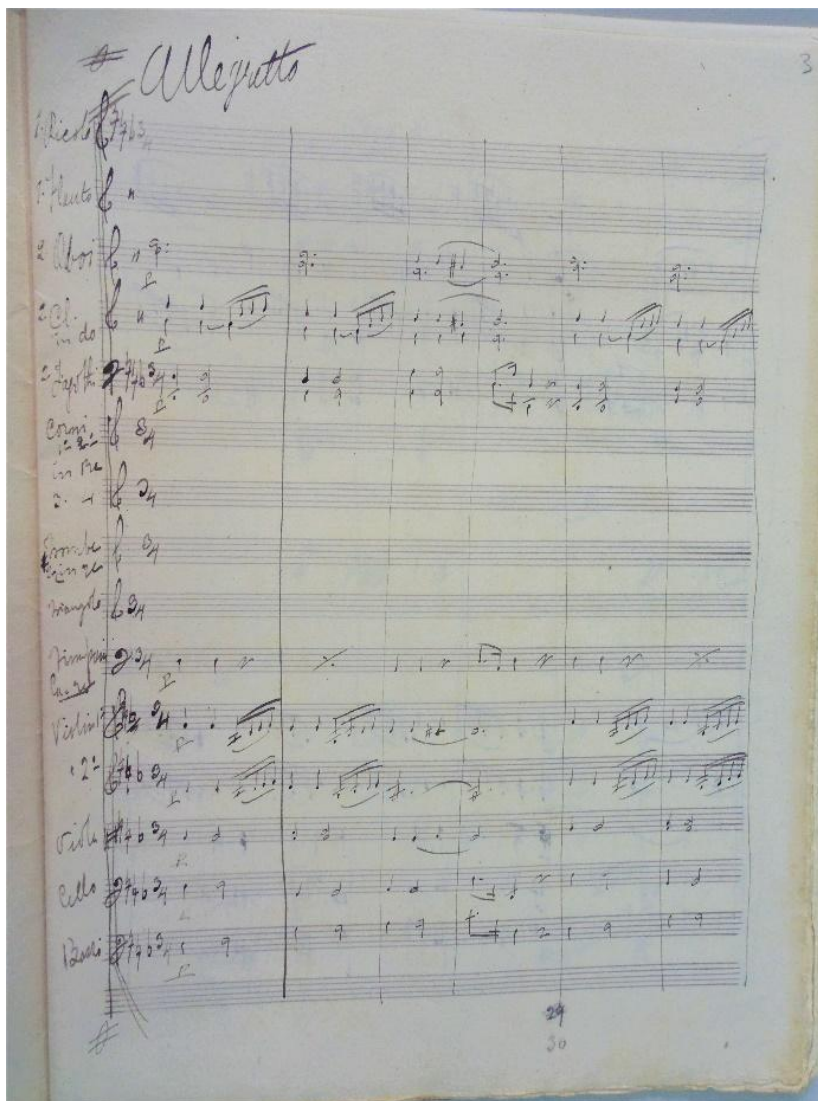 Allegretto
3
Piccolo
1º Flauto
2 Oboi
2 Cl.
in do
2 Fagotti
Corni
1º 2º
in Re
3 - 4
Trombe
Triangolo
Timpani
Violini 1º
" 2º
Viola
Cello
Bassi
29
30